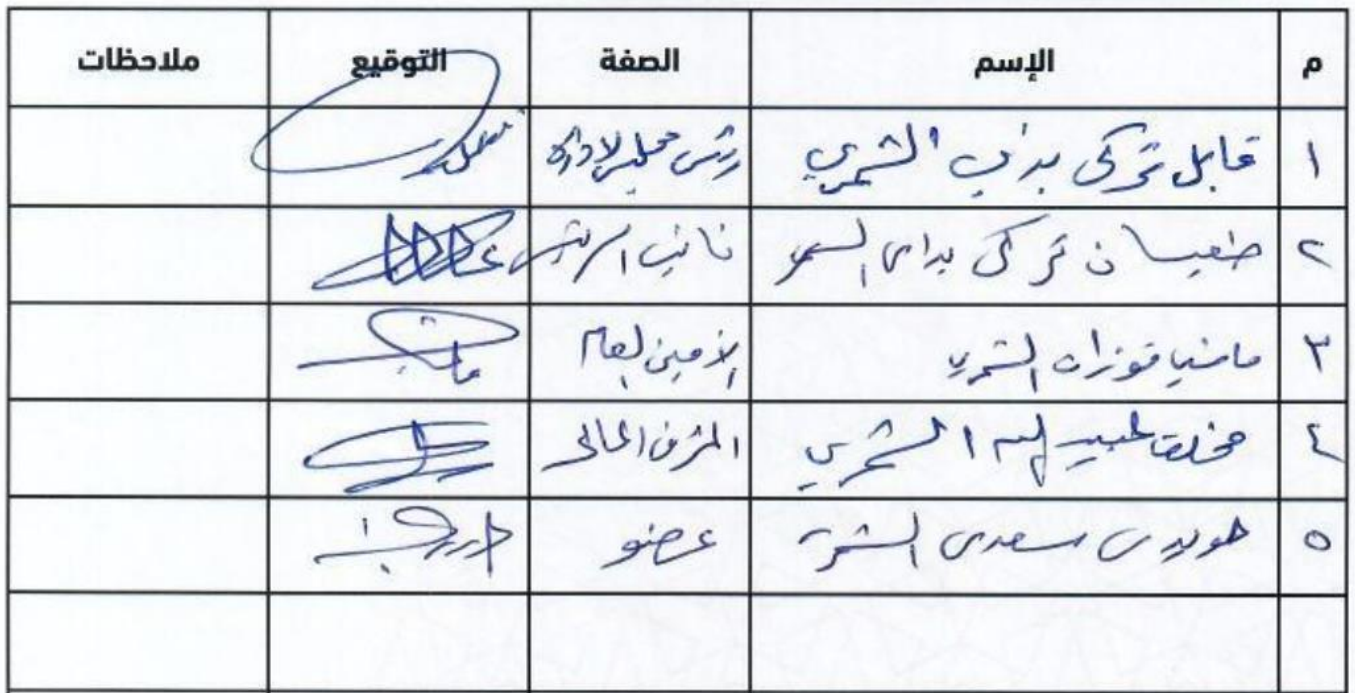 م الإسم الصفة التوقيع ملاحظات
١ قابل تركي بداي الشمري رئيس مجلس الادارة
٢ طعيسان تركي بداي الشمري نائب الرئيس
٣ فوزان الشمري الأمين العام
٤ مخلف عبيد الله الشمري المشرف المالي
٥ هويدي سعدي الشمري عضو